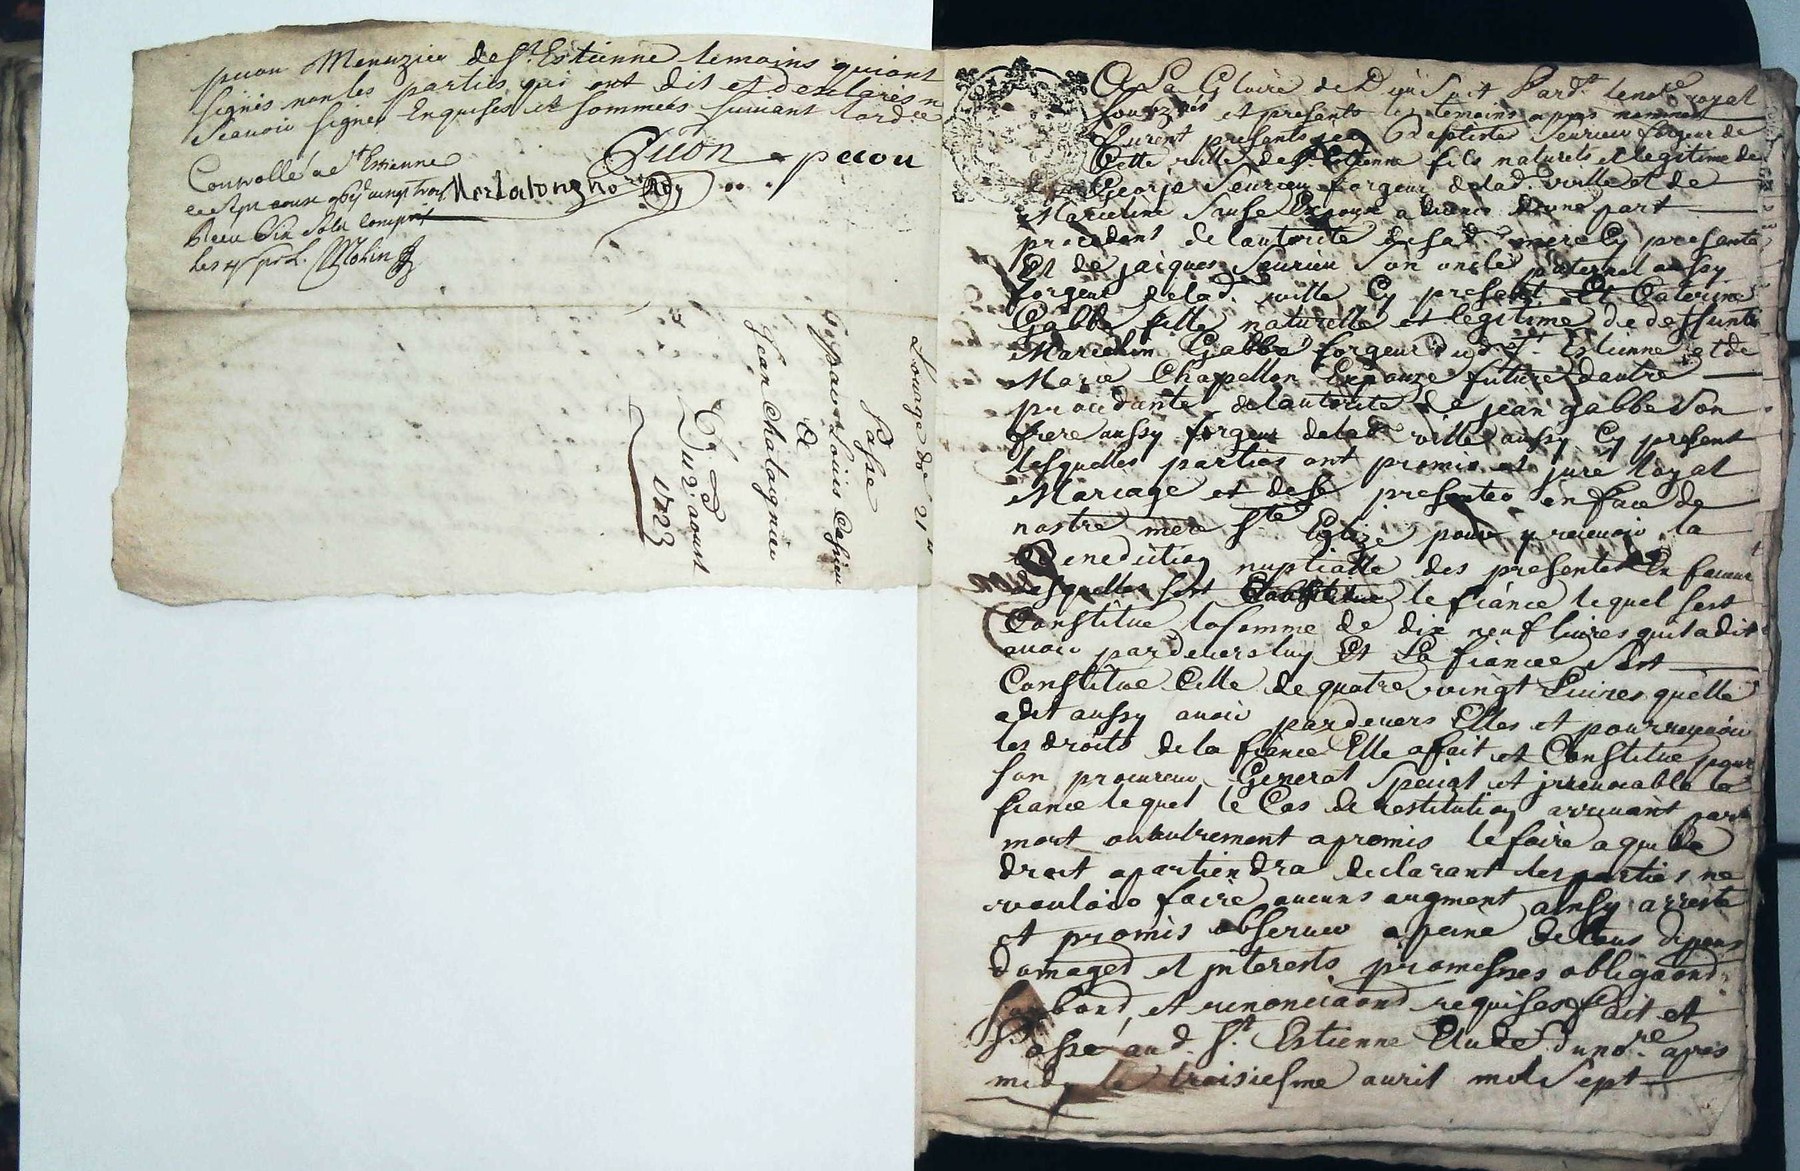 picon Menuzier de St. Estienne temoins qui ont
signés non les parties qui ont dit et declarés n
scavoir signer Enquises et sommées suivant lord.ce
Picon picon
Controllé a St Estienne
Merlatonghono.re Roy
Receu Six Solz compris
les 4s pr L. Mohin
Louage de 21#
Passé
par Louis
&
Jean Chataignier
Du 2 aoust
1723
A La Gloire de D. qu'il soit Pard.t le no.re royal
soubz.nes et presents les temoins apres nommes
Furent presents Jean Baptiste Seurieu forgeur de
Cette ville de St. Estienne fils naturels et legitime de
George Seurieu forgeur delad. ville et de
Marceline Expoux a d'une part
procedent de lautorité de sad. mere Cy presente
Et de jacques Seurieu Son oncle paternel aussy
forgeur delad. ville Cy present Et Caterine
Gabbe fille naturelle et legitime de deffunts
Marcelin Gabbe forgeur dud St. Estienne et de
Marie Chapellon Expouze future dautre
procedante de lautorité de jean gabbe Son
frere aussy forgeur delad. ville aussy Cy present
lesquelles parties ont promis et juré loyal
Mariage et de se presenter en face de
nostre mere Ste Eglize pour y recevoir la
Benediction nuptialle des presentes En faveur
desquelles sest le fiance lequel sest
Constitue la somme de dix neuf livres quil a dit
avoir pardevers luy Et La fiancee Sest
Constitue Celle de quatre vingt Livres quelle
a dit aussy avoir pardevers Elles et pour recevoir
les droits de la fiancee Elle a fait et Constitue pour
son procureur General Special et jrrevocable le
fiance lequel le Cas de restitution arrivant par
mort ou autrement a promis le faire a qui de
droit apartiendra declarant les parties ne
vouloir faire aucuns augment ainsy arresté
et promis observer a peine de tous depens
domages et jnterests promesses obligaond
soubond et renonciaond requises fait et
Passé aud. St. Estienne Etude dudno.re apres
midy le troisiesme avril mil sept